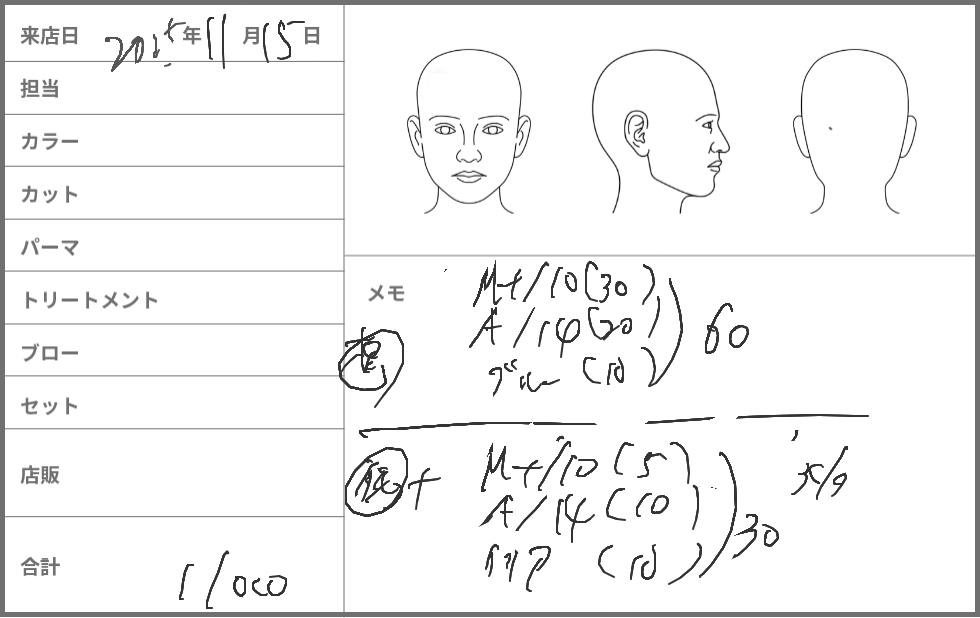 来店日 2025年11月15日
担当
カラー
カット
パーマ
トリートメント
ブロー
セット
店販
合計 11000
メモ
Mt/10(30)
A/14(20)
ブルー(10)
60
Mt/10(5)
A/14(10)
クリア(10)
30